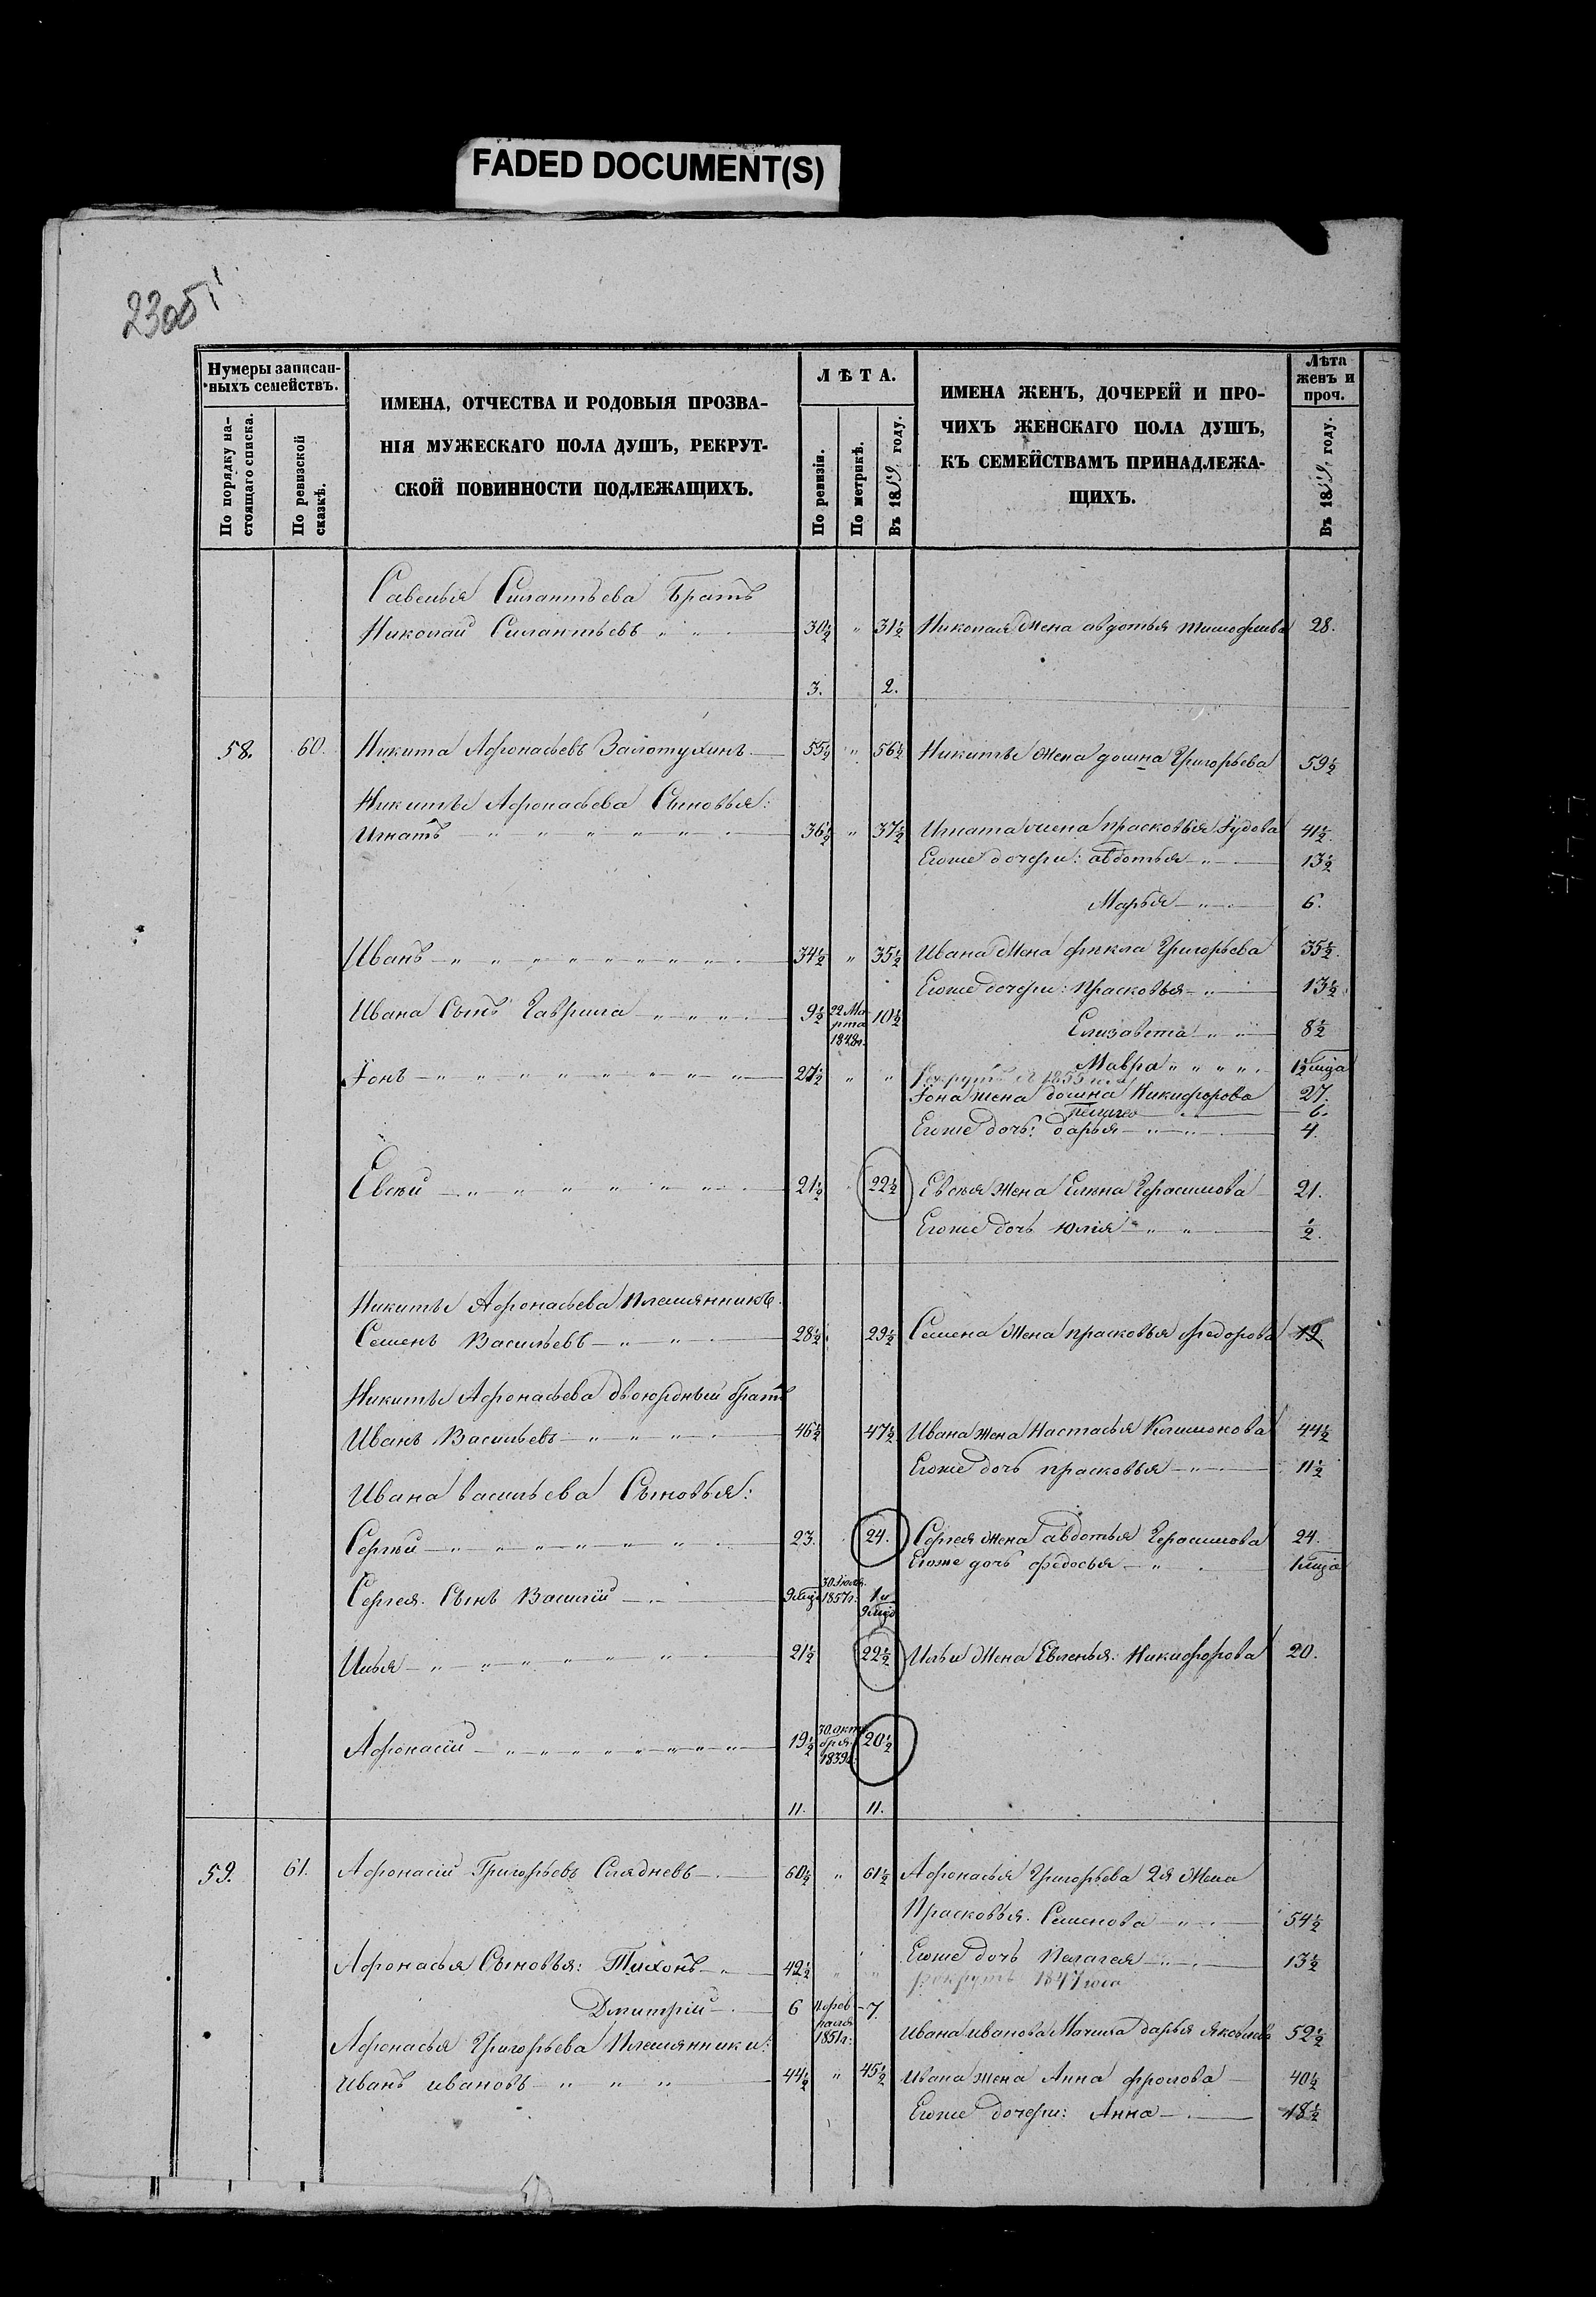 FADED DOCUMENT(S)
Нумеры записан-
ныхъ семействъ.
По порядку на-
стоящаго списка.
По ревизской
сказкѣ.
ИМЕНА, ОТЧЕСТВА И РОДОВЫЯ ПРОЗВА-
НІЯ МУЖЕСКАГО ПОЛА ДУШЪ, РЕКРУТ-
СКОЙ ПОВИННОСТИ ПОДЛЕЖАЩИХЪ.
ЛѢТА.
По ревизіи.
По метрикѣ.
Въ 1859 году.
ИМЕНА ЖЕНЪ, ДОЧЕРЕЙ И ПРО-
ЧИХЪ ЖЕНСКАГО ПОЛА ДУШЪ,
КЪ СЕМЕЙСТВАМЪ ПРИНАДЛЕЖА-
ЩИХЪ.
Лѣта
женъ и
проч.
Въ 1859 году.
Савелья Силантьева Братъ
Николай Силантьевъ 30½ " 31½ Николая жена авдотья тимофѣева 28.
3. 2.
58. 60. Никита Афонасьевъ Залотухинъ 55½ " 56½ Никиты жена домна Григорьева 59½
Никиты Афонасьева Сыновья:
Игнатъ 36½ " 37½ Игната жена прасковья Іудова 41½
Егоже дочери: авдотья 13½
Марья 6.
Иванъ 34½ " 35½ Ивана жена фекла Григорьева 35½
Егоже дочери: Прасковья 13½
Ивана Сынъ Гаврила 9½ 22 Ма-
рта
1848г. 10½
Елизавета 8½
Мавра 1½ мца
Іонъ 27½ " " Рекрутъ съ 1855 года
Іона жена домна Никифорова 27.
пелагея 6.
Егоже дочь: дарья 4.
Евсѣй 21½ 22½ Евсея жена Елена Герасимова 21.
Егоже дочь Юлія ½.
Никиты Афонасьева Племянникъ.
Семенъ Васильевъ 28½ 29½ Семена жена прасковья федорова 19
Никиты Афонасьева двоюрдный братъ
Иванъ Васильевъ 46½ 47½ Ивана жена Настасья Климонова 44½
Егоже дочь прасковья 11½
Ивана васильева Сыновья:
Сергѣй 23. 24. Сергея жена авдотья Герасимова 24.
Егоже дочь федосья 1 мца
Сергея Сынъ Василій 9 мца 30 Іюля
1857г. 1 и
9 мца
Илья 21½ 22½ Ильи жена Евгенья Никифорова 20.
Афонасій 19½ 30 октя
бря
1839г. 20½
11. 11.
59. 61. Афонасій Григорьевъ Слядневъ 60½ " 61½ Афонасья Григорьева 2я жена
Прасковья Семенова 54½
Егоже дочь Пелагея 13½
Афонасья Сыновья: Тихонъ 42½ " " рекрутъ 1847 года
Дмитрій 6 1851г. 7.
Афонасья Григорьева Племянники:
Ивана иванова Мачиха дарья яковлева 52½
Иванъ ивановъ 44½ " 45½ Ивана жена Анна фролова 40½
Егоже дочери: Анна 18½